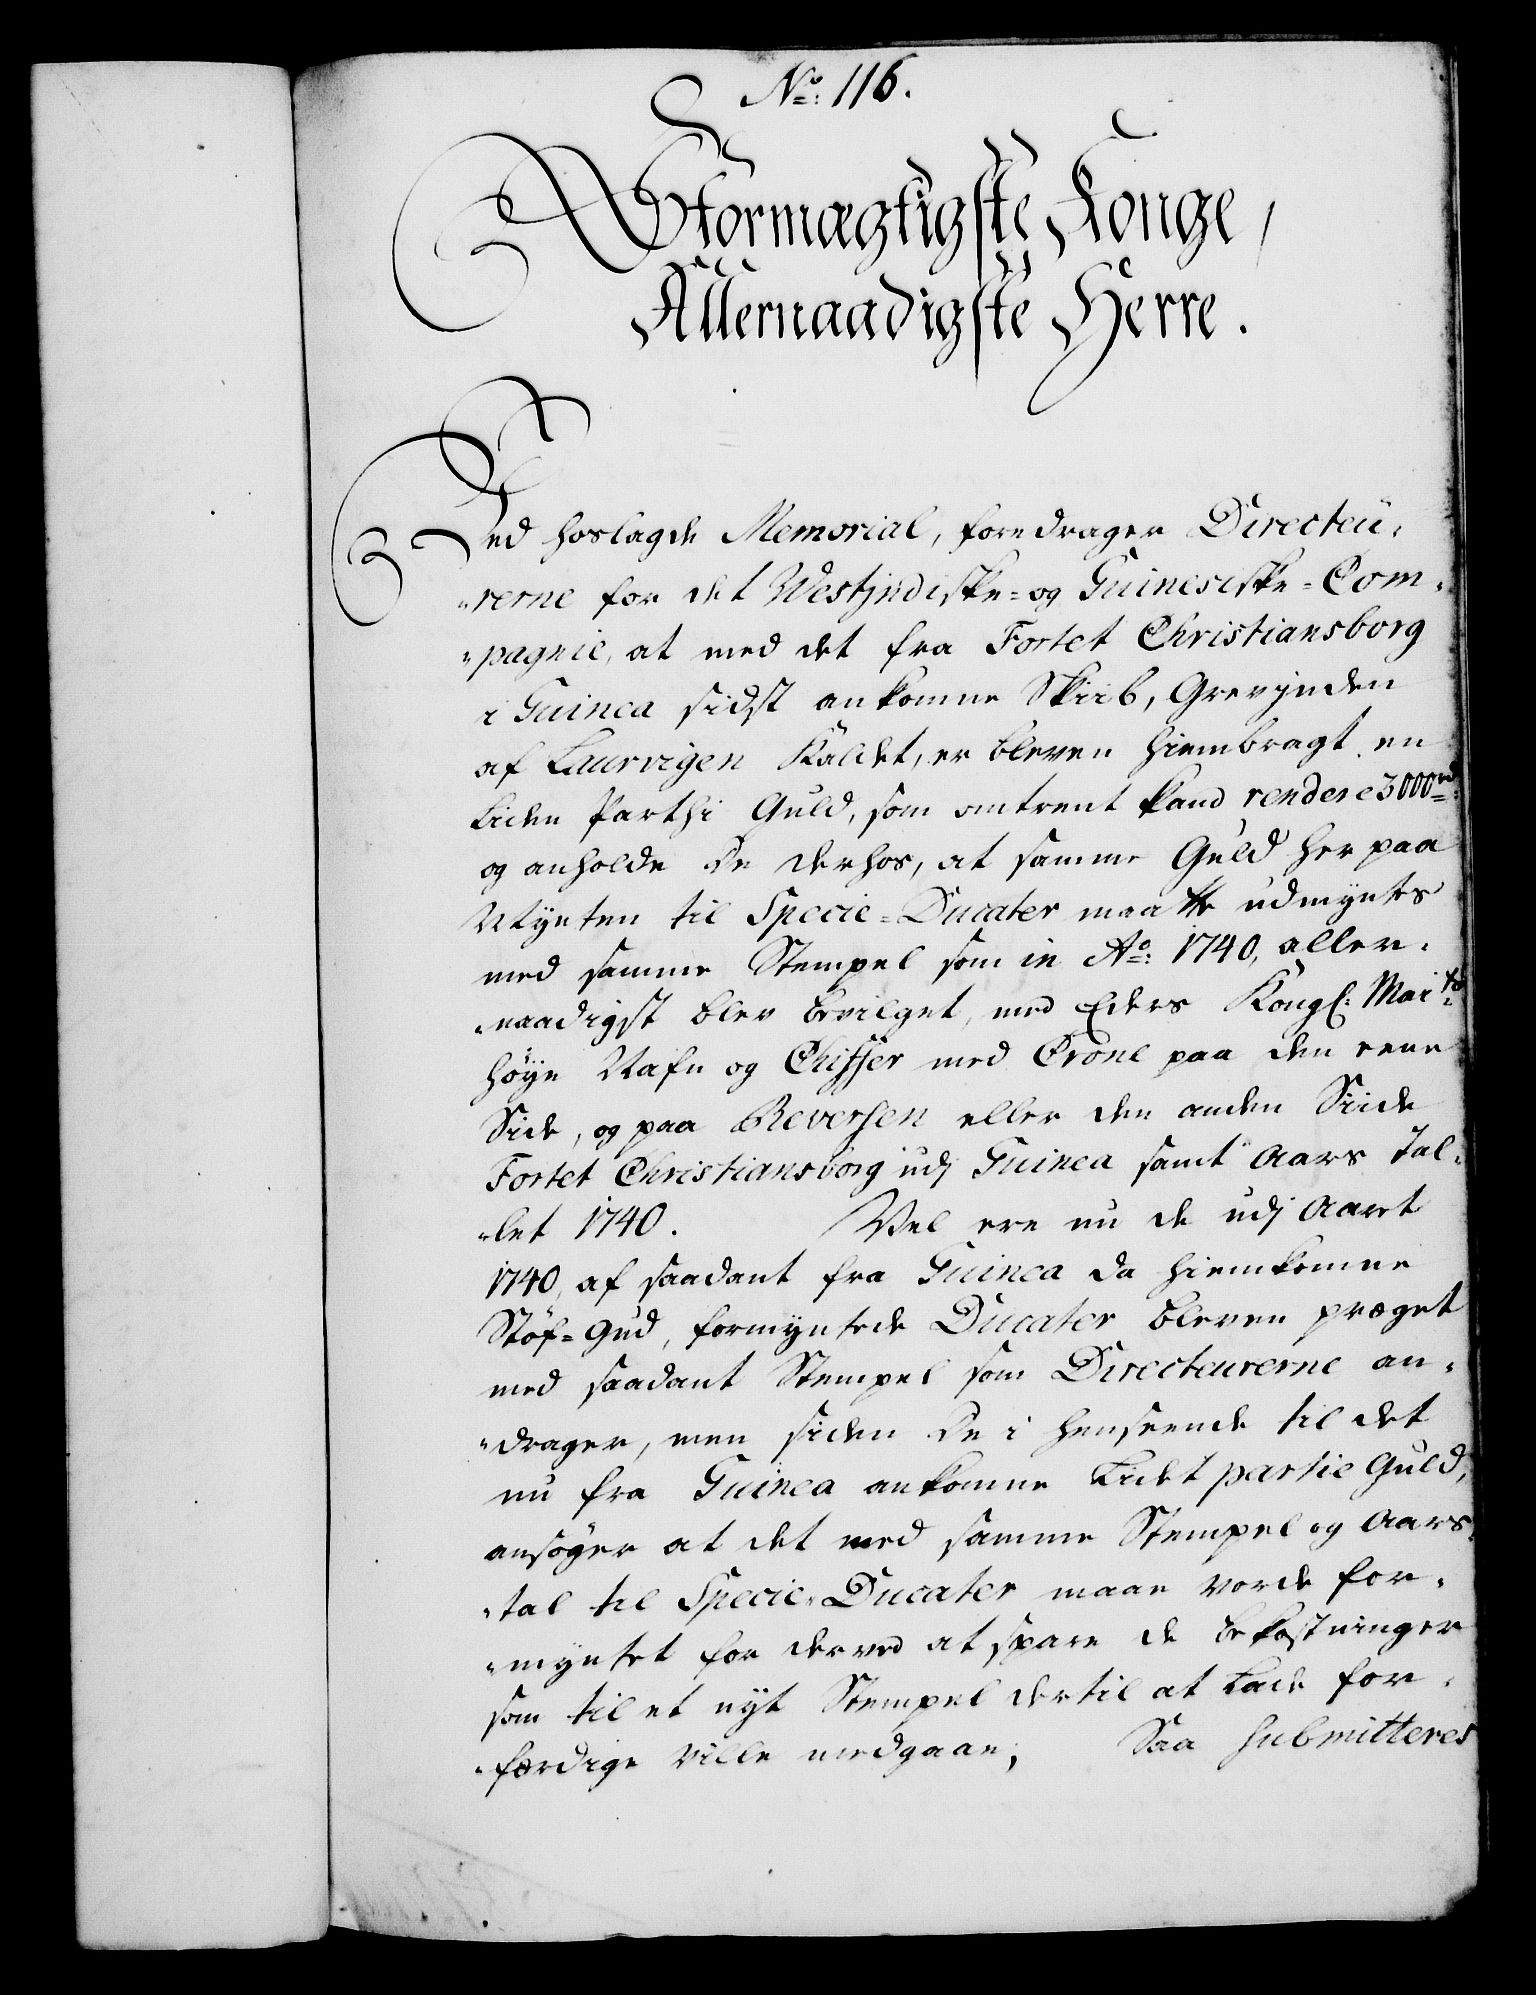 No: 116.
Stormægtigste Konge,
Allernaadigste Herre.
Ved hoslagde Memorial, foredrager Directeu-
-rerne for det Westjndiske- og Guinesiske-Com-
-pagnie, at med det fra Fortet Christiansborg
i Guinea sidst ankomne Skiib, Grevjnden
af Laurvigen kaldet, er bleven hiembragt en
Liden Parthi Guld, som omtrent kand rendere 3000 rd:
og anholde De derhos, at samme Guld her paa
Mÿnten til Specie-Ducater maatte udmÿntes
med samme Stempel som in Ao: 1740, aller-
-naadigst blev bevilget, med Eders Kongl: Maits:
höÿe Nafn og Chiffer med Crone paa den eene
Side, og paa Reversen eller den anden Siide
Fortet Christiansborg udj Guinea samt Aars Tal-
-let 1740. Vel ere nu de udj Aaret
1740, af saadant fra Guinea da hiemkomne
Stöf-Gud, formÿntede Ducater bleven præget
med saadant Stempel som Directeurerne an-
-drager, men siden De i henseende til det
nu fra Guinea ankomne Lidet partie Guld,
ansöger at det med samme Stempel og Aars-
-tal til Specie-Ducater maae vorde for-
-mÿntet for derved at spare de bekostninger
som til et nÿt Stempel dertil at Lade for-
-færdige ville medgaae; Saa submitteres